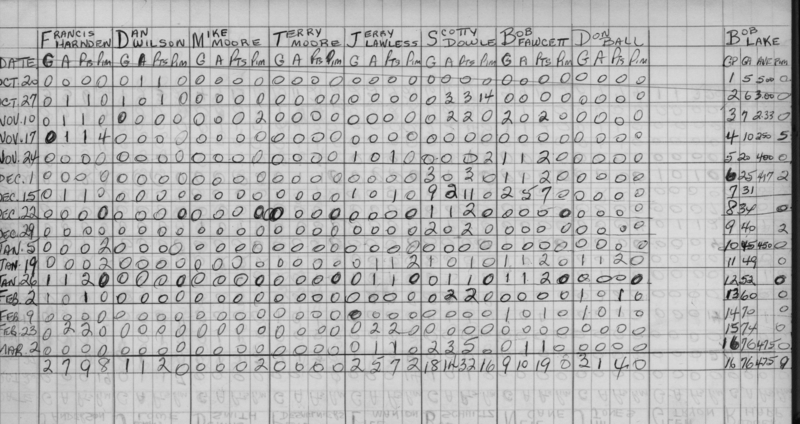 FRANCIS HARNDEN DAN WILSON MIKE MOORE TERRY MOORE JERRY LAWLESS SCOTTY DOWLE BOB FAWCETT DON BALL BOB LAKE
DATE G A Pts Pim G A Pts Pim G A Pts Pim G A Pts Pim G A Pts Pim G A Pts Pim G A Pts Pim G A Pts Pim GP GA AVE Pim
OCT. 20 0 0 0 0 0 1 1 0 0 0 0 0 0 0 0 0 0 0 0 0 0 0 0 0 0 0 0 0 0 0 0 0 1 5 5.00 0
OCT. 27 0 1 1 0 1 0 1 0 0 0 0 0 0 0 0 0 0 0 0 0 0 3 3 14 0 0 0 0 0 0 0 0 2 6 3.00 0
NOV. 10 0 1 1 0 0 0 0 0 0 0 0 2 0 0 0 0 0 0 0 0 0 2 2 0 2 0 2 0 0 0 0 0 3 7 2.33 0
NOV. 17 0 1 1 4 0 0 0 0 0 0 0 0 0 0 0 0 0 0 0 0 0 0 0 0 0 0 0 0 0 0 0 0 4 10 2.50 5
NOV. 24 0 0 0 0 0 0 0 0 0 0 0 0 0 0 0 0 1 0 1 0 0 0 0 2 1 1 2 0 0 0 0 0 5 20 4.00 0
DEC. 1 0 0 0 0 0 0 0 0 0 0 0 0 0 0 0 0 0 0 0 0 3 0 3 0 1 1 2 0 0 0 0 0 6 25 4.17 2
DEC. 15 0 1 1 0 0 0 0 0 0 0 0 0 0 0 0 0 1 0 1 0 9 2 11 0 2 5 7 0 0 0 0 0 7 31
DEC. 22 0 0 0 0 0 0 0 0 0 0 0 0 0 0 0 0 0 0 0 0 1 1 2 0 0 0 0 0 0 0 0 8 34 0
DEC. 29 0 0 0 0 0 0 0 0 0 0 0 0 0 0 0 0 0 0 0 0 2 0 2 0 0 0 0 0 0 0 0 0 9 40 2
JAN. 5 0 0 0 2 0 0 0 0 0 0 0 0 0 0 0 0 0 0 0 0 0 0 0 0 0 0 0 0 0 0 0 0 10 45 4.50 0
JAN. 19 0 0 0 2 0 0 0 0 0 0 0 0 0 0 0 0 0 1 1 2 1 0 1 0 1 1 2 0 1 1 2 0 11 49 0
JAN. 26 1 1 2 0 0 0 0 0 0 0 0 0 0 0 0 0 0 1 1 0 0 1 1 0 1 1 2 0 0 0 0 0 12 52 0
FEB. 2 1 0 1 0 0 0 0 0 0 0 0 0 0 0 0 0 0 0 0 0 0 2 2 0 0 0 0 0 1 0 1 0 13 60 0
FEB. 9 0 0 0 0 0 0 0 0 0 0 0 0 0 0 0 0 0 0 0 0 0 0 0 0 1 0 1 0 1 0 1 0 14 70 0
FEB. 23 0 2 2 0 0 0 0 0 0 0 0 0 0 0 0 0 0 2 2 0 0 0 0 0 0 0 0 0 0 0 0 0 15 74 0
MAR. 2 0 0 0 0 0 0 0 0 0 0 0 0 0 0 0 0 0 1 1 0 2 3 5 0 0 1 1 0 0 0 0 0 16 76 4.75 0
2 7 9 8 1 1 2 0 0 0 0 2 0 0 0 0 2 5 7 2 18 14 32 16 9 10 19 0 3 1 4 0 16 76 4.75 9